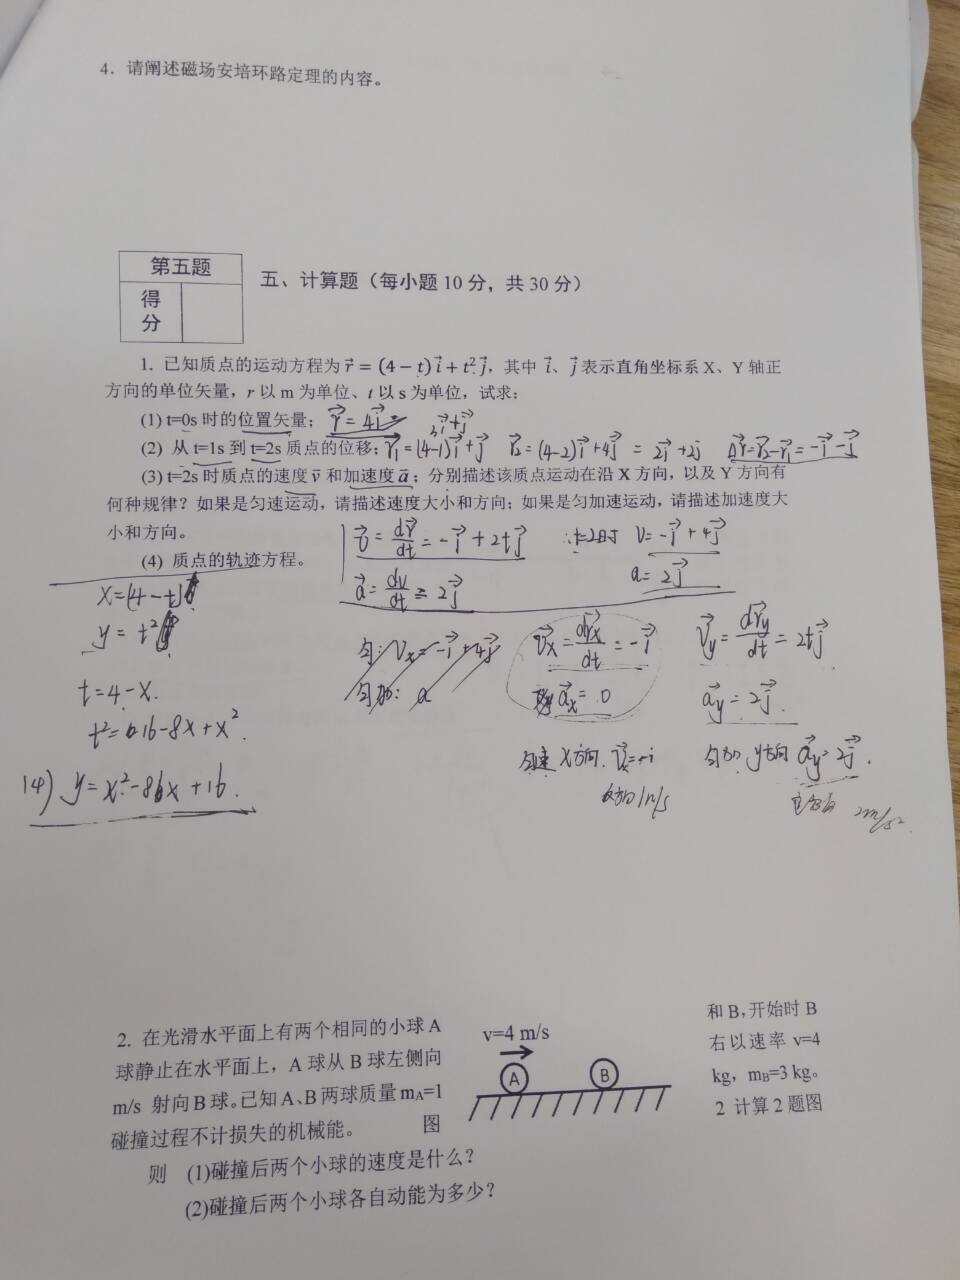 4. 请阐述磁场安培环路定理的内容。
第五题
得
分
五、计算题（每小题 10 分，共 30 分）
1. 已知质点的运动方程为 r⃗ = (4 − t) i⃗ + t² j⃗，其中 i⃗、j⃗ 表示直角坐标系 X、Y 轴正
方向的单位矢量，r 以 m 为单位、t 以 s 为单位，试求：
(1) t=0s 时的位置矢量；
3i⃗+j⃗
(2) 从 t=1s 到 t=2s 质点的位移；r⃗₁=(4-1)i⃗+j⃗ r⃗₂=(4-2)i⃗+4j⃗ Δr⃗=r⃗₂-r⃗₁=-i⃗-j⃗
(3) t=2s 时质点的速度 v⃗ 和加速度 a⃗；分别描述该质点运动在沿 X 方向，以及 Y 方向有
何种规律？如果是匀速运动，请描述速度大小和方向；如果是匀加速运动，请描述加速度大
小和方向。
v⃗ = dr⃗/dt = -i⃗ + 2tj⃗ ∴t=2时 v=-i⃗+4j⃗
(4) 质点的轨迹方程。
a⃗ = dv/dt = 2j⃗ a=2j⃗
x=(4-t)
y = t²
匀: Vx=-i⃗+4j⃗ v⃗x= dr⃗x/dt = -i⃗ v⃗y = dr⃗y/dt = 2tj⃗
匀加: a a⃗x=0 a⃗y=2j⃗
t=4-x.
t²=16-8x+x².
匀速 x方向 匀加, y方向 a⃗y=2j⃗.
1m/s 2m/s²
(4) y=x²-8x+16.
2. 在光滑水平面上有两个相同的小球 A
和 B,开始时 B
球静止在水平面上，A 球从 B 球左侧向
右以速率 v=4
m/s 射向 B 球。已知 A、B 两球质量 mA=1
kg，mB=3 kg。
碰撞过程不计损失的机械能。
图
2 计算 2 题图
v=4 m/s
A
B
则 (1)碰撞后两个小球的速度是什么？
(2)碰撞后两个小球各自动能为多少？